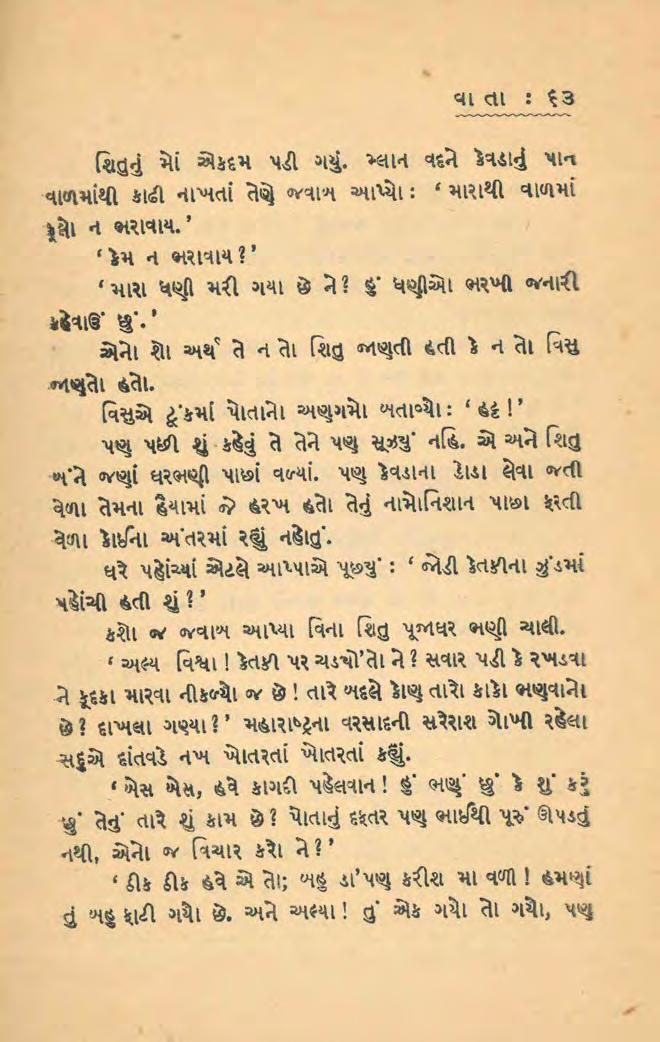 વા તા : ૬૩
શિતુનું મેાં એકદમ પડી ગયું. મ્લાન વદને કેવડાનું પાન
વાળમાંથી કાઢી નાખતાં તેણે જવાબ આપ્યેા : ‘ મારાથી વાળમાં
ફૂલેા ન ભરાવાય.’
‘ કેમ ન ભરાવાય ?’
‘ મારા ધણી મરી ગયા છે ને? હું ધણીએા ભરખી જનારી
કહેવાઉં છું.’
એનેા શેા અર્થ તે ન તેા શિતુ જાણતી હતી કે ન તેા વિસુ
જાણતેા હતેા.
વિસુએ ટૂંકમાં પેાતાનેા અણગમેા બતાવ્યેા : ‘ હટ્ટ !’
પણ પછી શું કહેવું તે તેને પણ સૂઝયું નહિ. એ અને શિતુ
બંને જણાં ઘરભણી પાછાં વળ્યાં. પણ કેવડાના ડેાડા લેવા જતી
વેળા તેમના હૈયામાં જે હરખ હતેા તેનું નામેાનિશાન પાછા ફરતી
વેળા કેાઈના અંતરમાં રહ્યું નહેાતું.
ઘરે પહેાંચ્યાં એટલે આપ્પાએ પૂછયું : ‘ જોડી કેતકીના ઝુંડમાં
પહેાંચી હતી શું ?’
કશેા જ જવાબ આપ્યા વિના શિતુ પૂજાઘર ભણી ચાલી.
‘ અલ્યા વિશ્વા ! કેતકી પર ચડચો’તેા ને ? સવાર પડી કે રખડવા
ને કૂદકા મારવા નીકળ્યેા જ છે ! તારે બદલે કેાણ તારેા કાકેા ભણવાનેા
છે ? દાખલા ગણ્યા ?’ મહારાષ્ટ્રના વરસાદની સરેરાશ ગેાખી રહેલા
સદુએ દાંતવડે નખ ખેાતરતાં ખેાતરતાં કહ્યું.
‘ બેસ બેસ, હવે કાગદી પહેલવાન ! હું ભણું છું કે શું કરું
છું તેનું તારે શું કામ છે ? પેાતાનું દફતર પણ ભાઈથી પૂરું ઊપડતું
નથી, એનેા જ વિચાર કરેા ને ?’
‘ ઠીક ઠીક હવે એ તેા; બહુ ડા’પણ કરીશ મા વળી ! હમણાં
તું બહુ ફાટી ગયેા છે. અને અલ્યા ! તું એક ગયેા તેા ગયેા, પણ